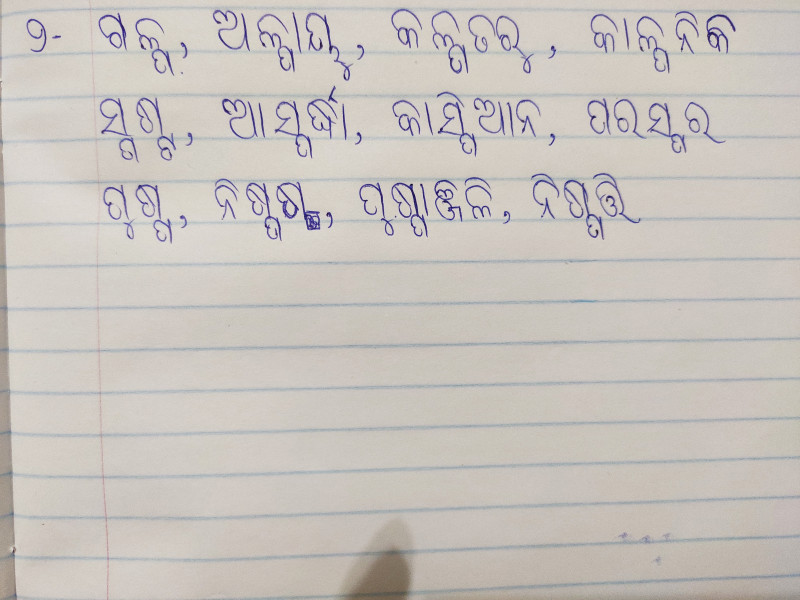 ୨- ଗଳ୍ପ, ଅଳ୍ପାୟୁ, କଳ୍ପତରୁ, କାଳ୍ପନିକ
ସ୍ପଷ୍ଟ, ଆସ୍ପର୍ଦ୍ଧା, କାସ୍ପିଆନ, ପରସ୍ପର
ପୁଷ୍ପ, ପୁଷ୍ପାଞ୍ଜଳି, ନିଷ୍ପତ୍ତି